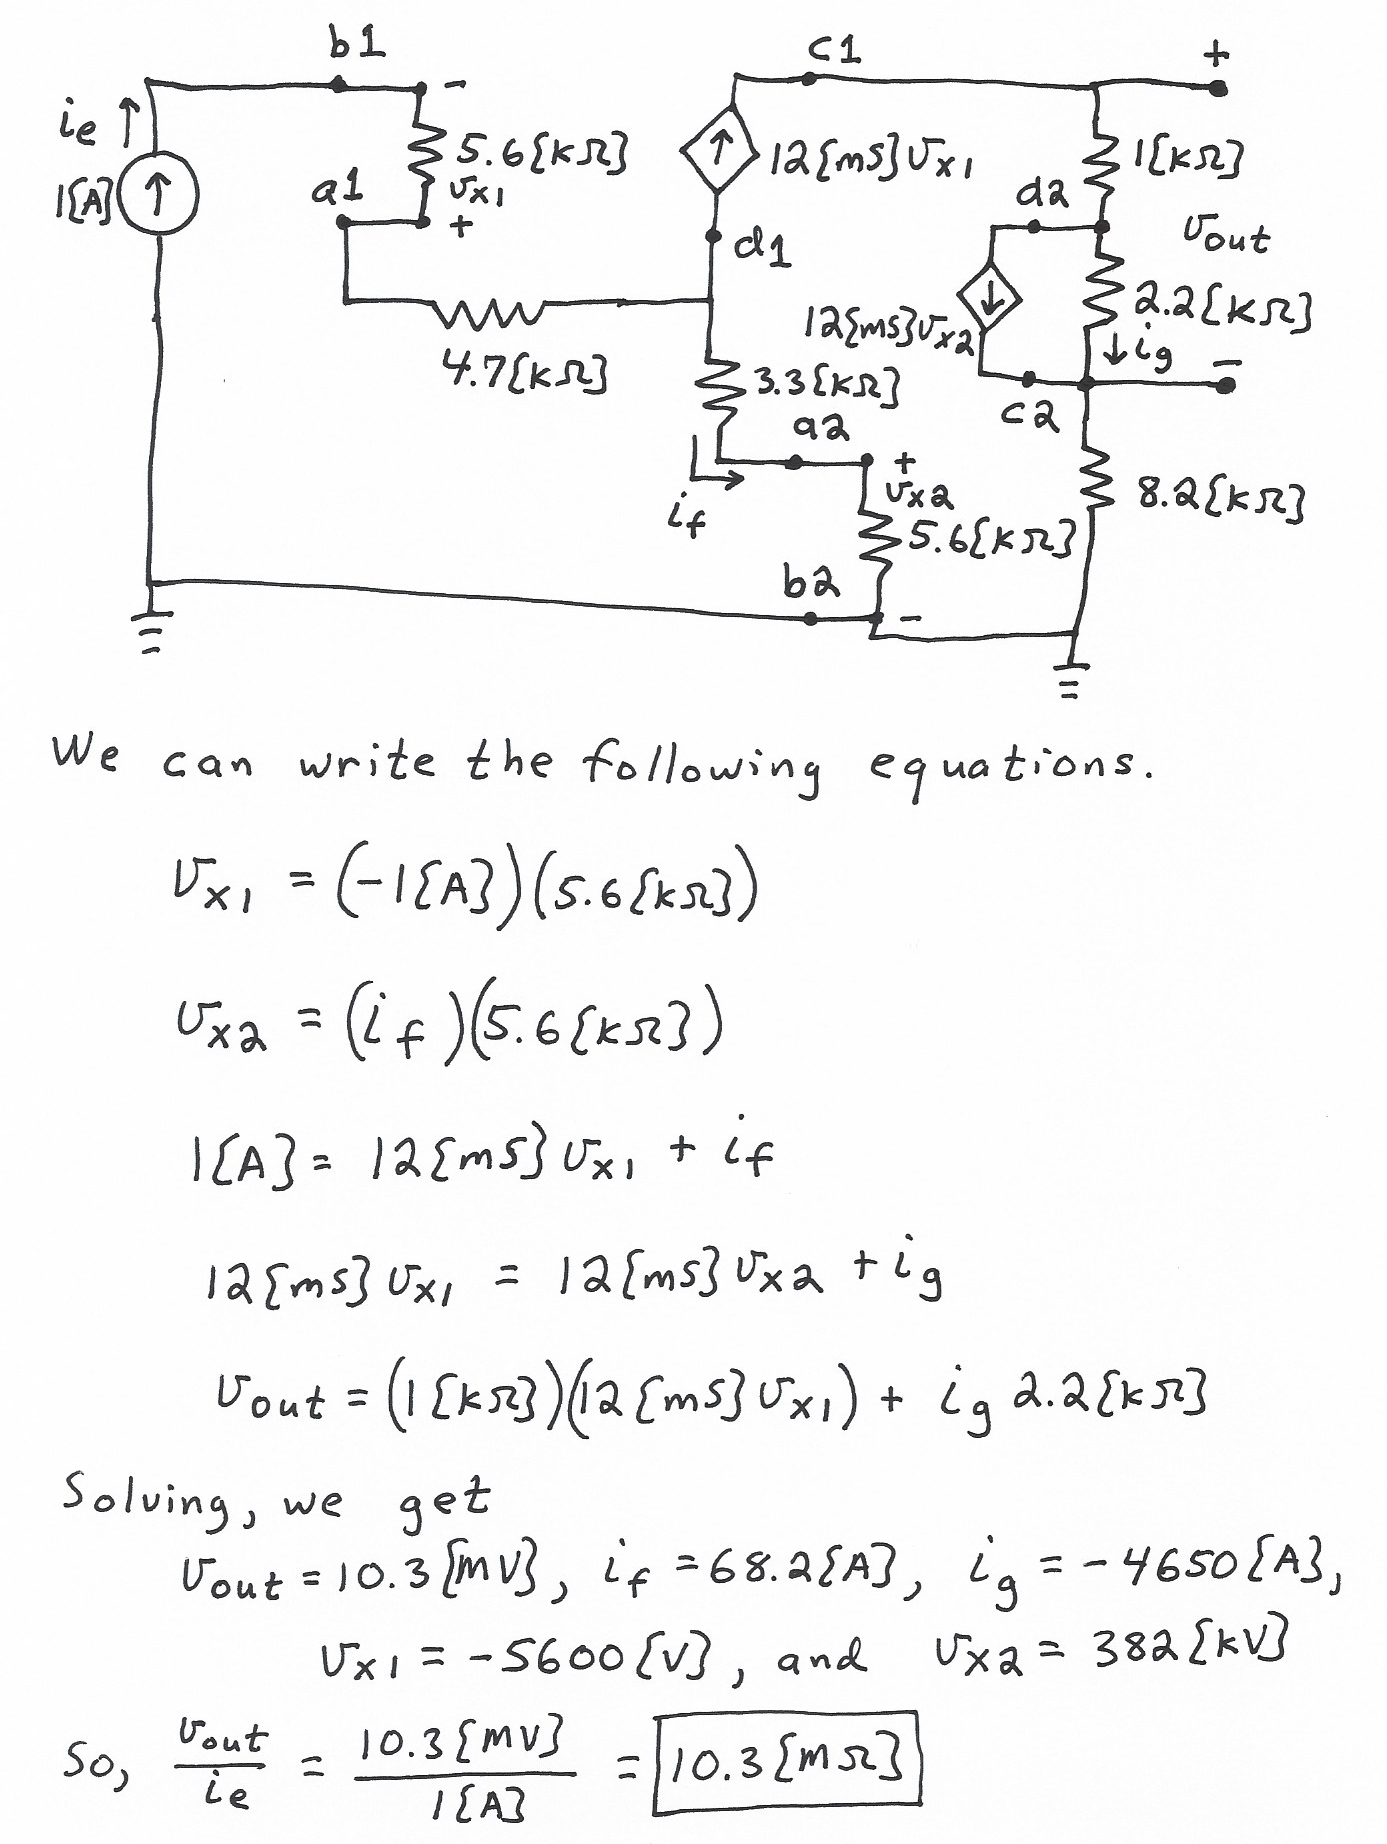 b1
c1
+
ie
-
5.6[kΩ]
12[mS]vx1
1[kΩ]
1[A]
a1
vx1
+
d1
d2
vout
12[mS]vx2
2.2[kΩ]
ig
-
4.7[kΩ]
3.3[kΩ]
a2
c2
+
vx2
if
5.6[kΩ]
8.2[kΩ]
b2
-
We can write the following equations.
vx1 = (-1[A])(5.6[kΩ])
vx2 = (if)(5.6[kΩ])
1[A] = 12[mS]vx1 + if
12[mS]vx1 = 12[mS]vx2 + ig
vout = (1[kΩ])(12[mS]vx1) + ig 2.2[kΩ]
Solving, we get
vout = 10.3[MV], if = 68.2[A], ig = -4650[A],
vx1 = -5600[V], and vx2 = 382[kV]
So, vout/ie = 10.3[MV]/1[A] = 10.3[MΩ]